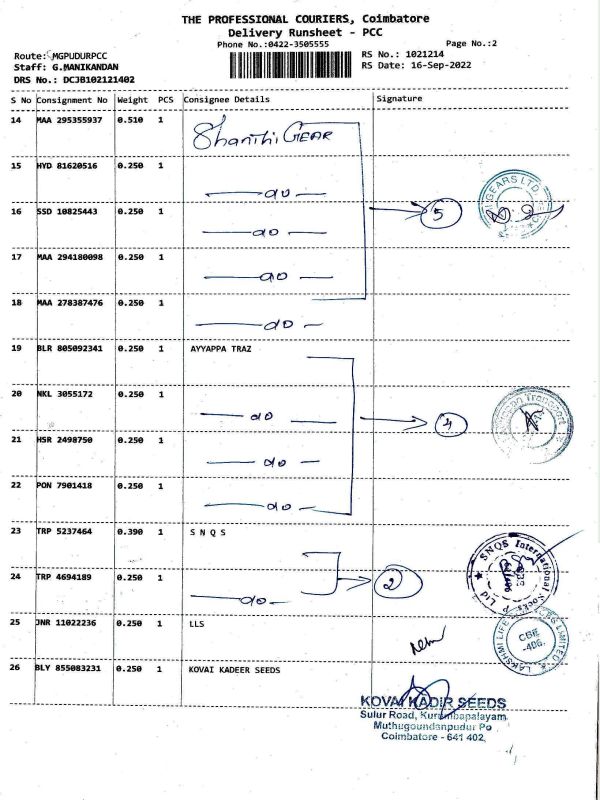 THE PROFESSIONAL COURIERS, Coimbatore
Delivery Runsheet - PCC
Phone No.:0422-3505555
Page No.:2
Route: MGPUDURPCC
RS No.: 1021214
Staff: G.MANIKANDAN
RS Date: 16-Sep-2022
DRS No.: DCJB102121402
S No Consignment No Weight PCS Consignee Details Signature
14 MAA 295355937 0.510 1 Shanthi GEAR
15 HYD 81620516 0.250 1 do
16 SSD 10825443 0.250 1 do 5
17 MAA 294180098 0.250 1 do
18 MAA 278387476 0.250 1 do
19 BLR 805092341 0.250 1 AYYAPPA TRAZ
20 NKL 3055172 0.250 1 do 4
21 HSR 2498750 0.250 1 do
22 PON 7901418 0.250 1 do
23 TRP 5237464 0.390 1 S N Q S
SNQS International Socks P Ltd
24 TRP 4694189 0.250 1 do 2
25 JNR 11022236 0.250 1 LLS
LAKSHMI LIFE LIMITED
CBE
-406.
26 BLY 855083231 0.250 1 KOVAI KADEER SEEDS
KOVAI KADIR SEEDS
Sulur Road, Kurumbapalayam
Muthugoundanpudur Po
Coimbatore - 641 402.